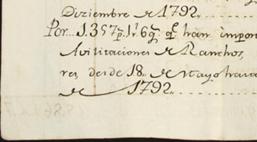 Diziembre de 1792.
Por... 1.357p. 1r. 6g. qe. han impor
Avilitaciones de Ranchos,
res, desde 18. de Mayo hasta
de 1792.